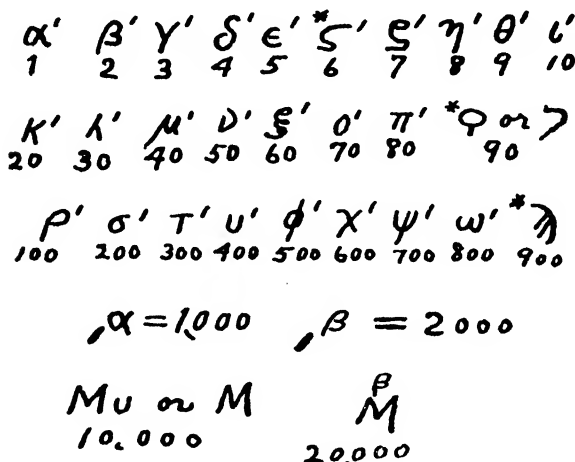 α′ β′ γ′ δ′ ε′ *ϛ′ ξ′ η′ θ′ ι′
1 2 3 4 5 6 7 8 9 10
κ′ λ′ μ′ ν′ ξ′ ο′ π′ *Ϙ or
20 30 40 50 60 70 80 90
ρ′ σ′ τ′ υ′ φ′ χ′ ψ′ ω′ *ϡ
100 200 300 400 500 600 700 800 900
͵α = 1,000 ͵β = 2000
Mυ or M β M
10,000 20,000